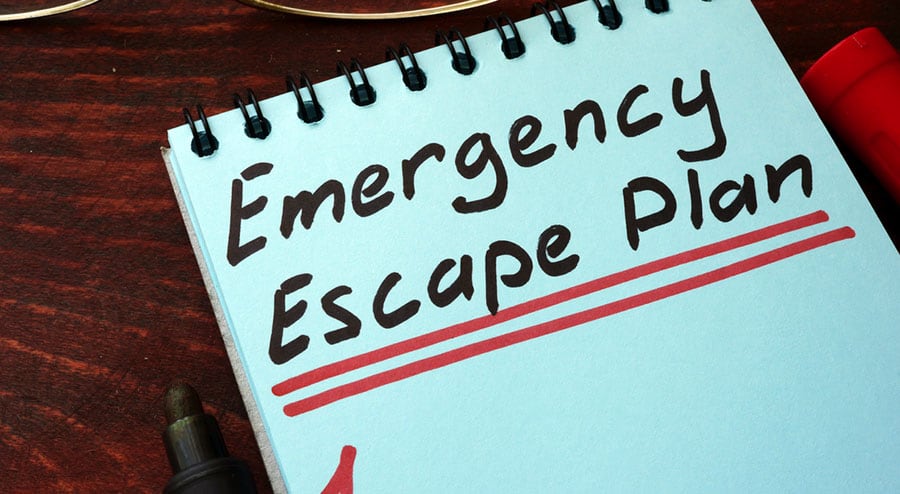 Emergency
Escape Plan